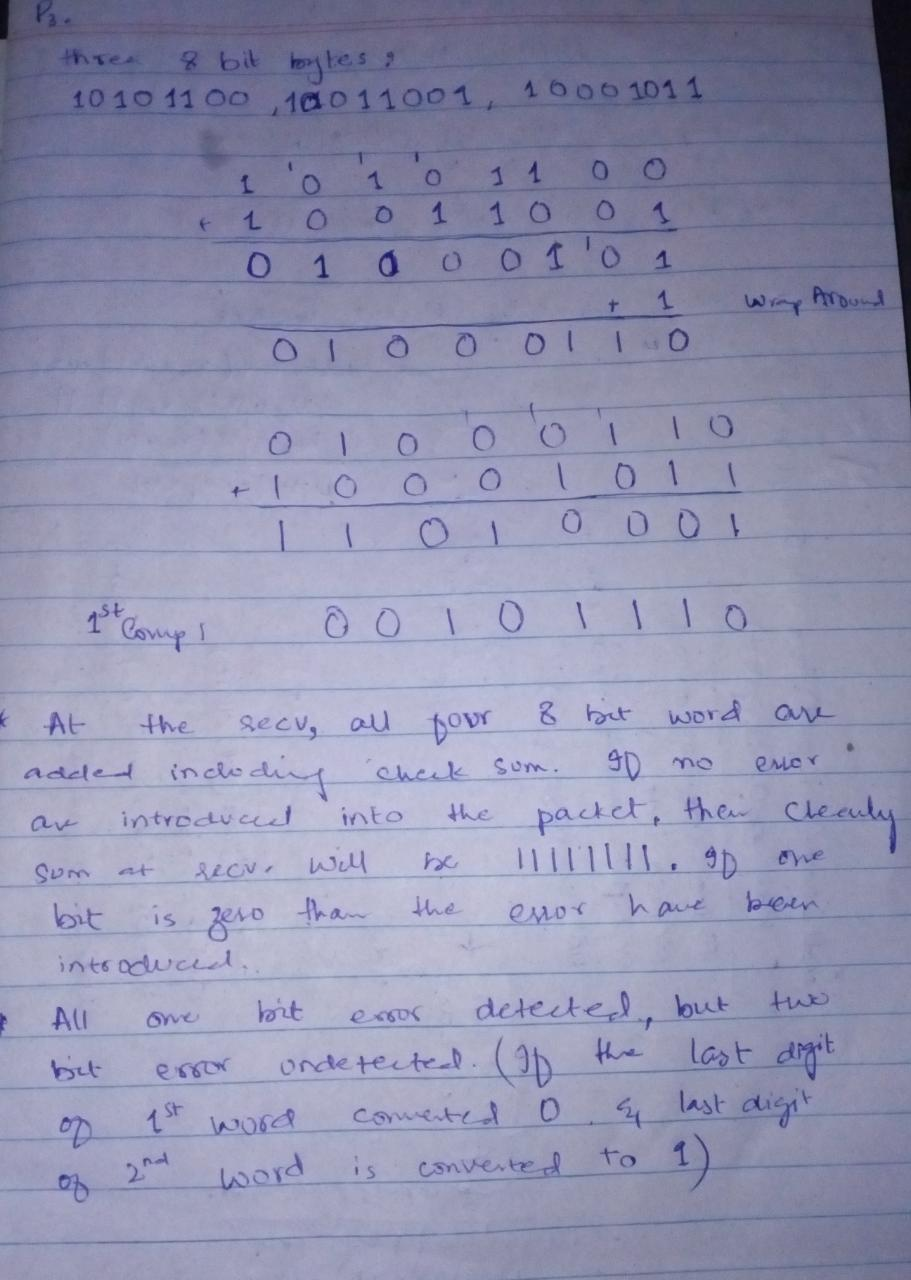 P3.
three 8 bit bytes ;
10101100 , 10011001 , 10001011
1 0 1 0 1 1 0 0
+ 1 0 0 1 1 0 0 1
0 1 0 0 0 1 0 1
+ 1 Wrap Around
0 1 0 0 0 1 1 0
0 1 0 0 0 1 1 0
+ 1 0 0 0 1 0 1 1
1 1 0 1 0 0 0 1
1st Comp : 0 0 1 0 1 1 1 0
* At the recv, all four 8 bit word are
added including check sum. If no error
are introduced into the packet, then clearly
sum at recv. will be 11111111. If one
bit is zero than the error have been
introduced.
* All one bit error detected, but two
bit error undetected. (If the last digit
of 1st word converted 0 & last digit
of 2nd word is converted to 1)